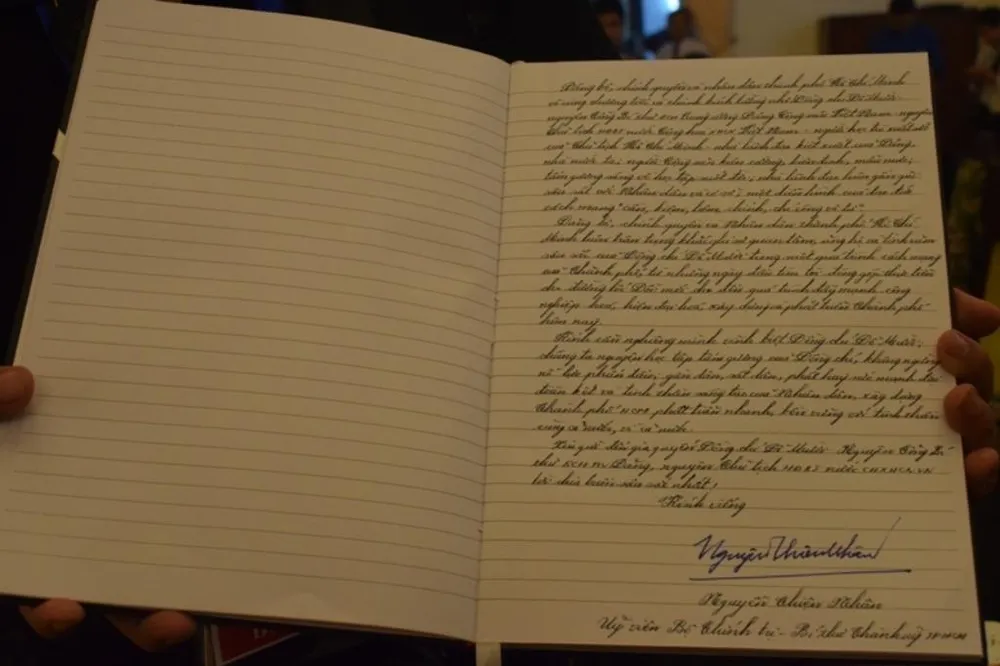 Đảng bộ, chính quyền và nhân dân thành phố Hồ Chí Minh
vô cùng thương tiếc và kính viếng Đồng chí Đỗ Mười -
nguyên Tổng Bí thư BCH Trung ương Đảng Cộng sản Việt Nam - nguyên
Chủ tịch HĐBT nước Cộng hòa XHCN Việt Nam - người học trò xuất sắc
của Chủ tịch Hồ Chí Minh - nhà lãnh đạo kiệt xuất của Đảng,
nhà nước ta; người Cộng sản kiên cường,
tấm gương sáng về học tập suốt đời; nhà lãnh đạo luôn gần gũi
sâu sát với Nhân dân và là một điển hình của đạo đức
cách mạng "cần, kiệm, liêm, chính, chí công vô tư".
Đảng bộ, chính quyền và Nhân dân thành phố Hồ Chí
Minh luôn trân trọng khắc ghi sự quan tâm, ủng hộ và tình cảm
sâu sắc của Đồng chí Đỗ Mười trong suốt quá trình cách mạng
của Thành phố, từ những ngày đầu tìm tòi đóng góp thực tiễn
cho đường lối Đổi mới cho đến quá trình đẩy mạnh công
nghiệp hóa, hiện đại hóa, xây dựng và phát triển Thành phố
hôm nay.
Kính cẩn nghiêng mình vĩnh biệt Đồng chí Đỗ Mười,
chúng ta nguyện học tập tấm gương của Đồng chí, không ngừng
nỗ lực phấn đấu, gần dân, sát dân, phát huy sức mạnh đại
đoàn kết và tinh thần sáng tạo của Nhân dân, xây dựng
Thành phố HCM phát triển nhanh, bền vững với tinh thần
cùng cả nước, vì cả nước.
Xin gửi đến gia quyến Đồng chí Đỗ Mười - Nguyên Tổng Bí
thư BCH TW Đảng, nguyên Chủ tịch HĐBT nước CHXHCN VN
lời chia buồn sâu sắc nhất!
Kính viếng
Nguyễn Thiện Nhân
Nguyễn Thiện Nhân
Uỷ viên Bộ Chính trị - Bí thư Thành uỷ TP. HCM